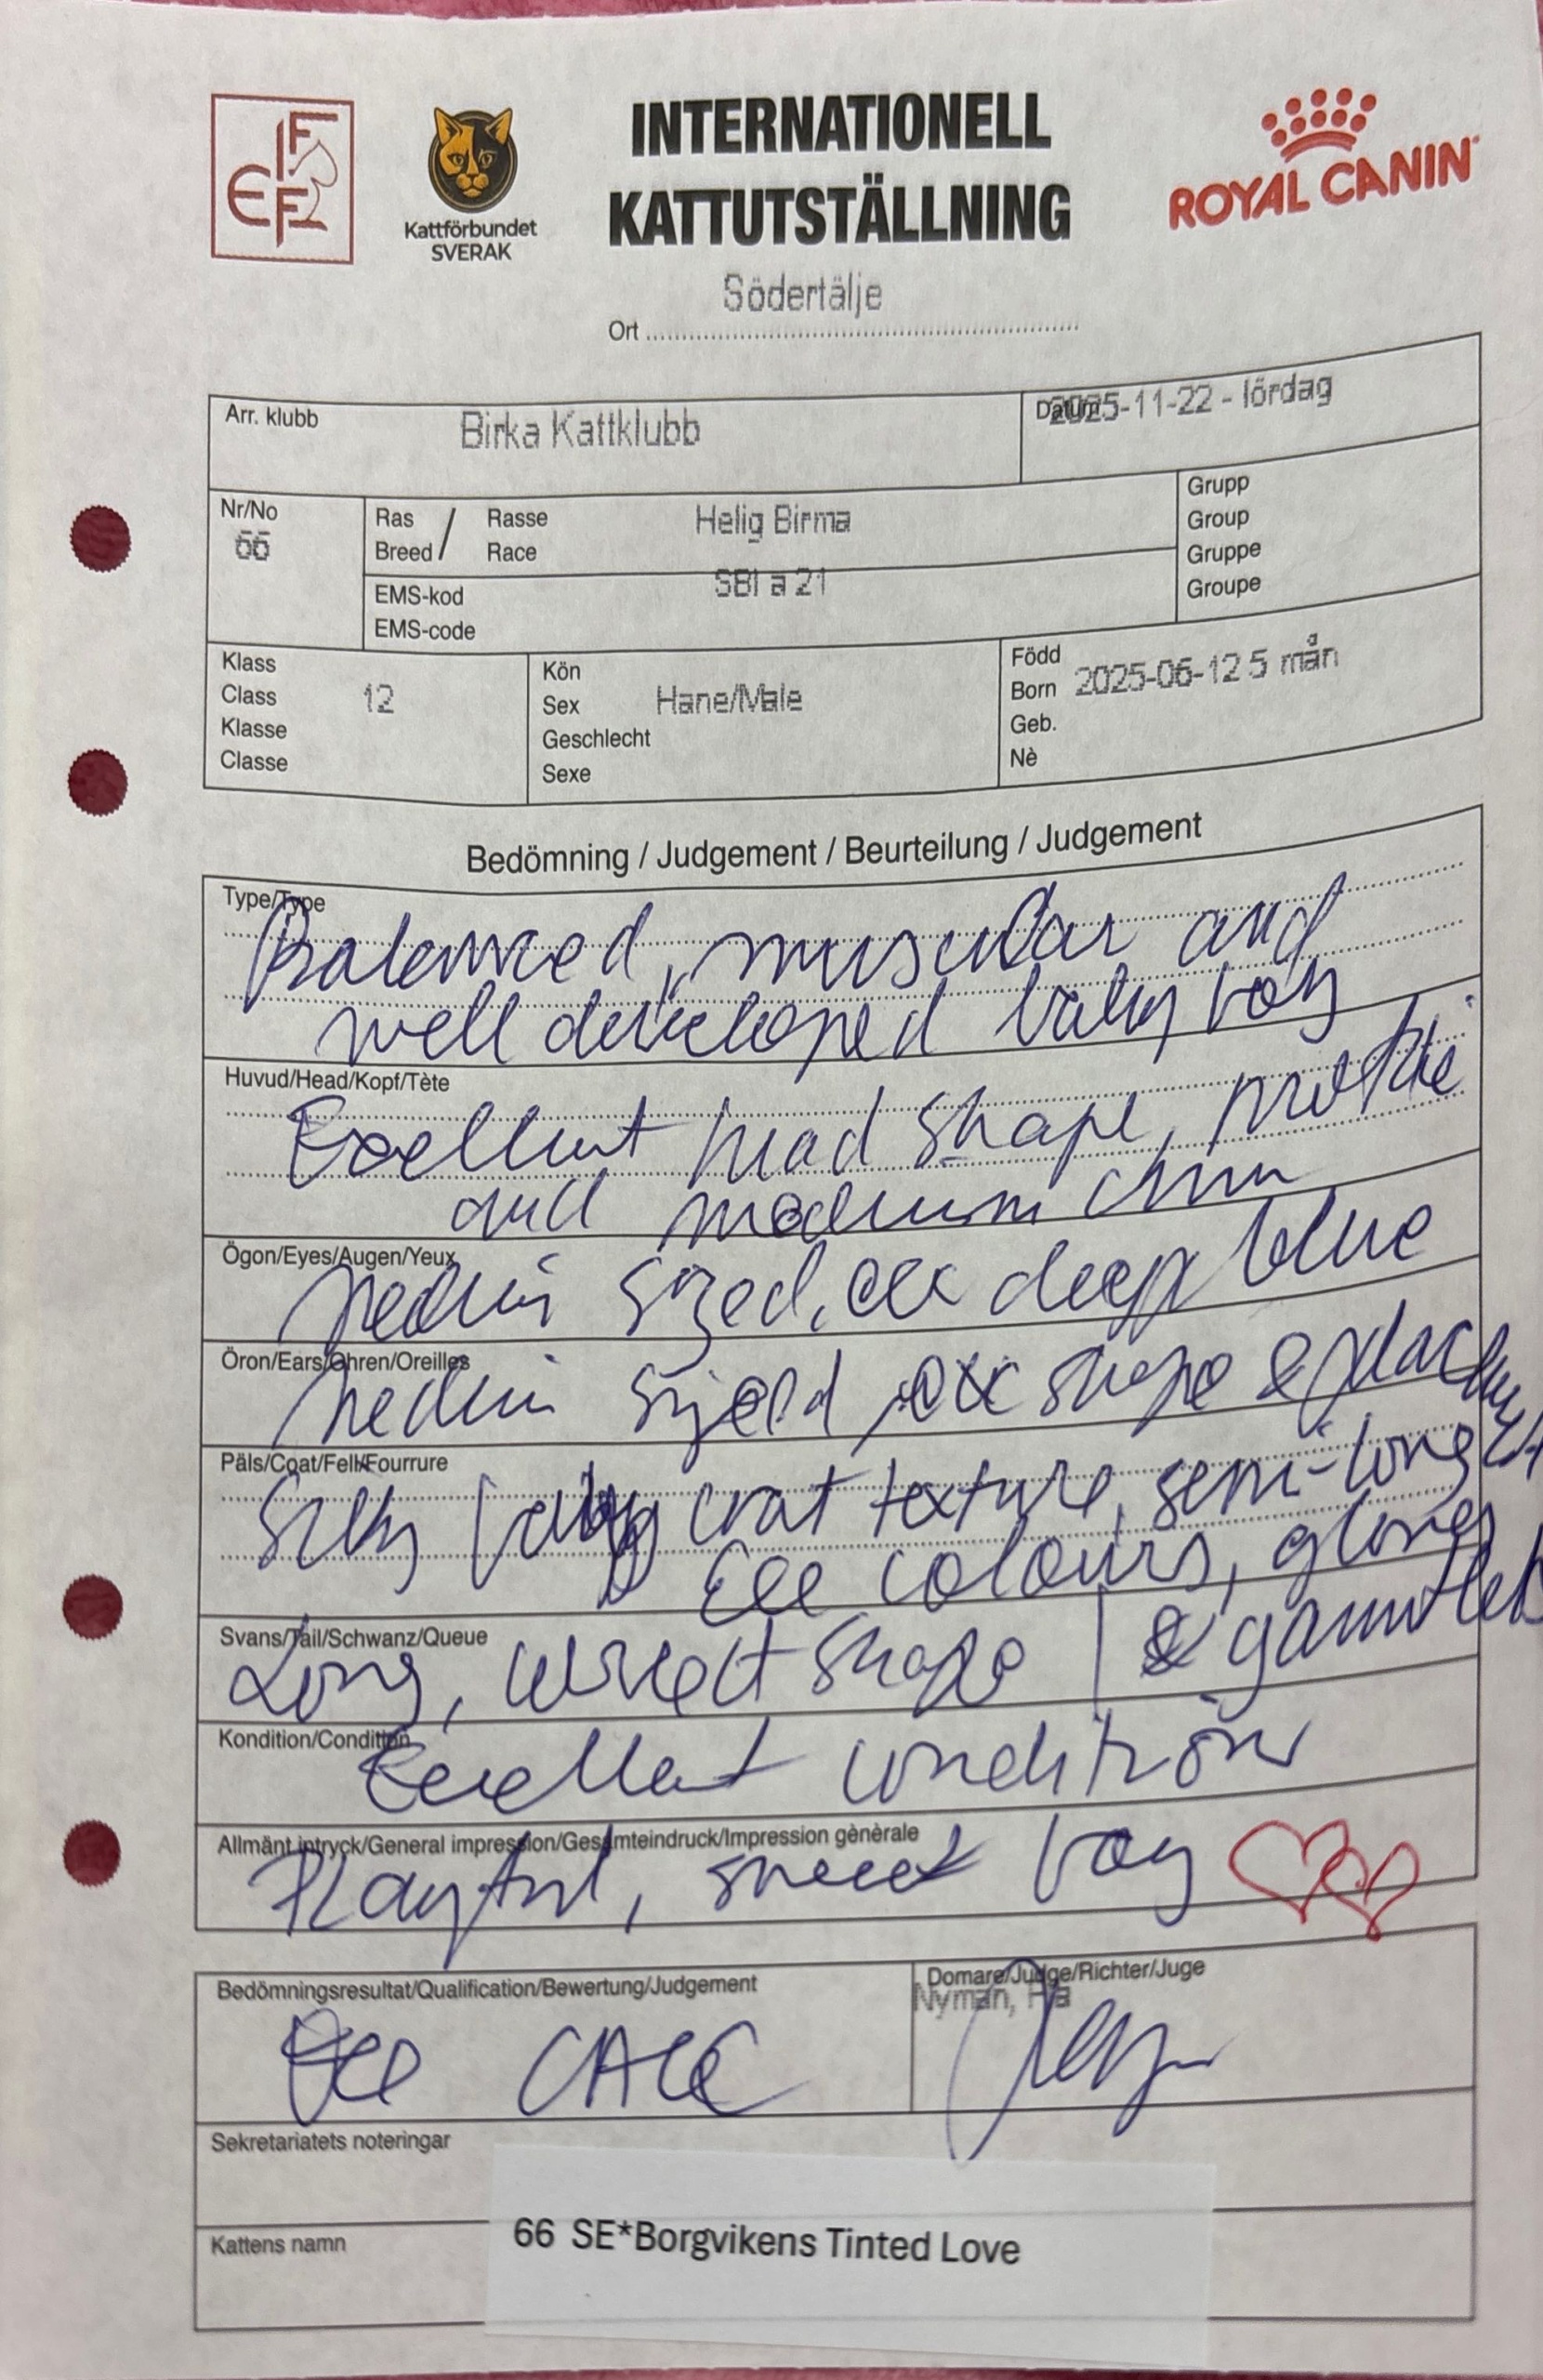 FIFe
Kattförbundet
SVERAK
INTERNATIONELL
KATTUTSTÄLLNING
ROYAL CANIN
Södertälje
Ort
Arr. klubb
Birka Kattklubb
Datum
2025-11-22 - lördag
Nr/No
66
Ras / Rasse
Breed / Race
Helig Birma
EMS-kod
EMS-code
SBI a 21
Grupp
Group
Gruppe
Groupe
Klass
Class 12
Klasse
Classe
Kön
Sex Hane/Male
Geschlecht
Sexe
Född
Born 2025-06-12 5 mån
Geb.
Nè
Bedömning / Judgement / Beurteilung / Judgement
Type/Type
Balanced, muscular and
well developed baby boy
Huvud/Head/Kopf/Tète
Excellent head shape, profile
and medium chin
Ögon/Eyes/Augen/Yeux
Medium sized, deep blue
Öron/Ears/Ohren/Oreilles
Medium sized, shape & placement
Päls/Coat/Fell/Fourrure
Silky baby coat texture, semi-long
colours, gloves
& gauntlets
Svans/Tail/Schwanz/Queue
Long, correct shape
Kondition/Condition
Excellent condition
Allmänt intryck/General impression/Gesamteindruck/Impression gènèrale
Playful, sweet boy
Bedömningsresultat/Qualification/Bewertung/Judgement
Domare/Judge/Richter/Juge
Nyman,
Sekretariatets noteringar
Kattens namn
66 SE*Borgvikens Tinted Love